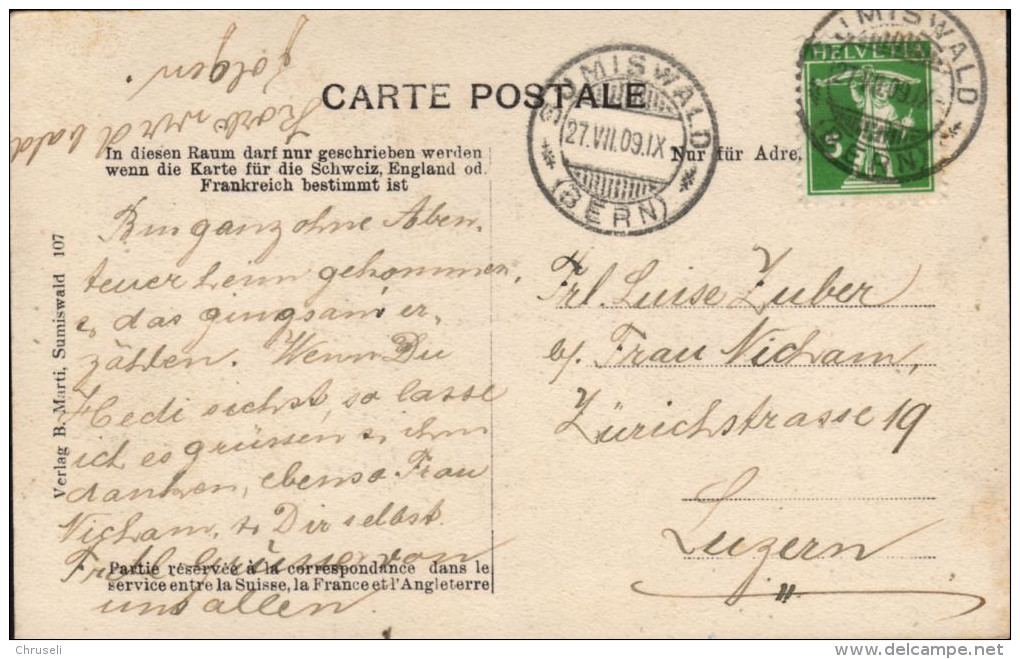 Korb wird bald
folgen.
CARTE POSTALE
In diesen Raum darf nur geschrieben werden
wenn die Karte für die Schweiz, England od.
Frankreich bestimmt ist
SUMISWALD
27.VII.09.IX
(BERN)
Nur für Adre
HELVETIA
5
SUMISWALD
27.VII.09.IX
(BERN)
Verlag B. Marti, Sumiswald 107
Bin ganz ohne Aben-
teuer heim gekommen,
das ging sam er-
zählen. Wenn Du
Hedi siehst, so lasse
ich es grüssen & ihm
danken, ebenso Frau
Nicham, & Dir selbst.
von
uns allen.
Partie réservée à la correspondance dans le
service entre la Suisse, la France et l'Angleterre
Frl. Luise Zuber
b/. Frau Nicham,
Zürichstrasse 19
Luzern
Chruseli